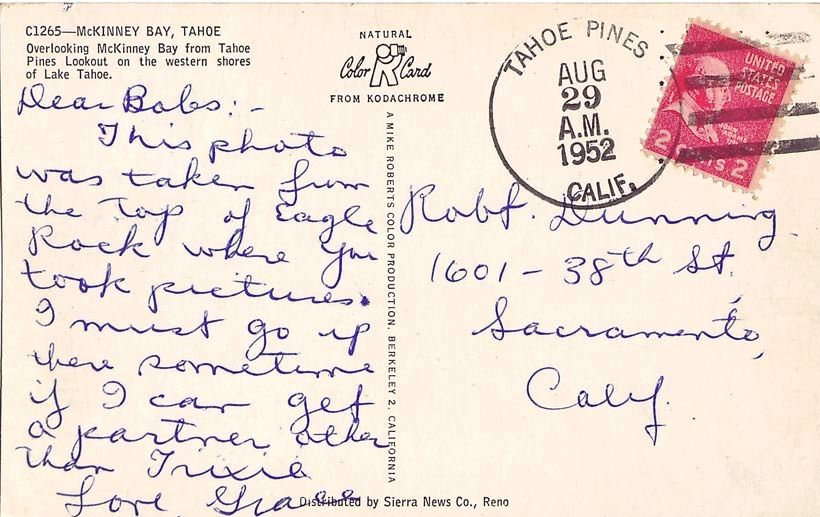 C1265—McKINNEY BAY, TAHOE
Overlooking McKinney Bay from Tahoe
Pines Lookout on the western shores
of Lake Tahoe.
Dear Babs:-
This photo
was taken from
the top of Eagle
Rock where you
took pictures.
I must go up
there sometime
if I can get
a partner other
than Trixie
Love Grace
NATURAL
Color Card
FROM KODACHROME
A MIKE ROBERTS COLOR PRODUCTION. BERKELEY 2, CALIFORNIA
Distributed by Sierra News Co., Reno
TAHOE PINES
AUG
29
A.M.
1952
CALIF.
UNITED
STATES
POSTAGE
2 CENTS 2
Robt. Dunning
1601-38th St.
Sacramento,
Calif.